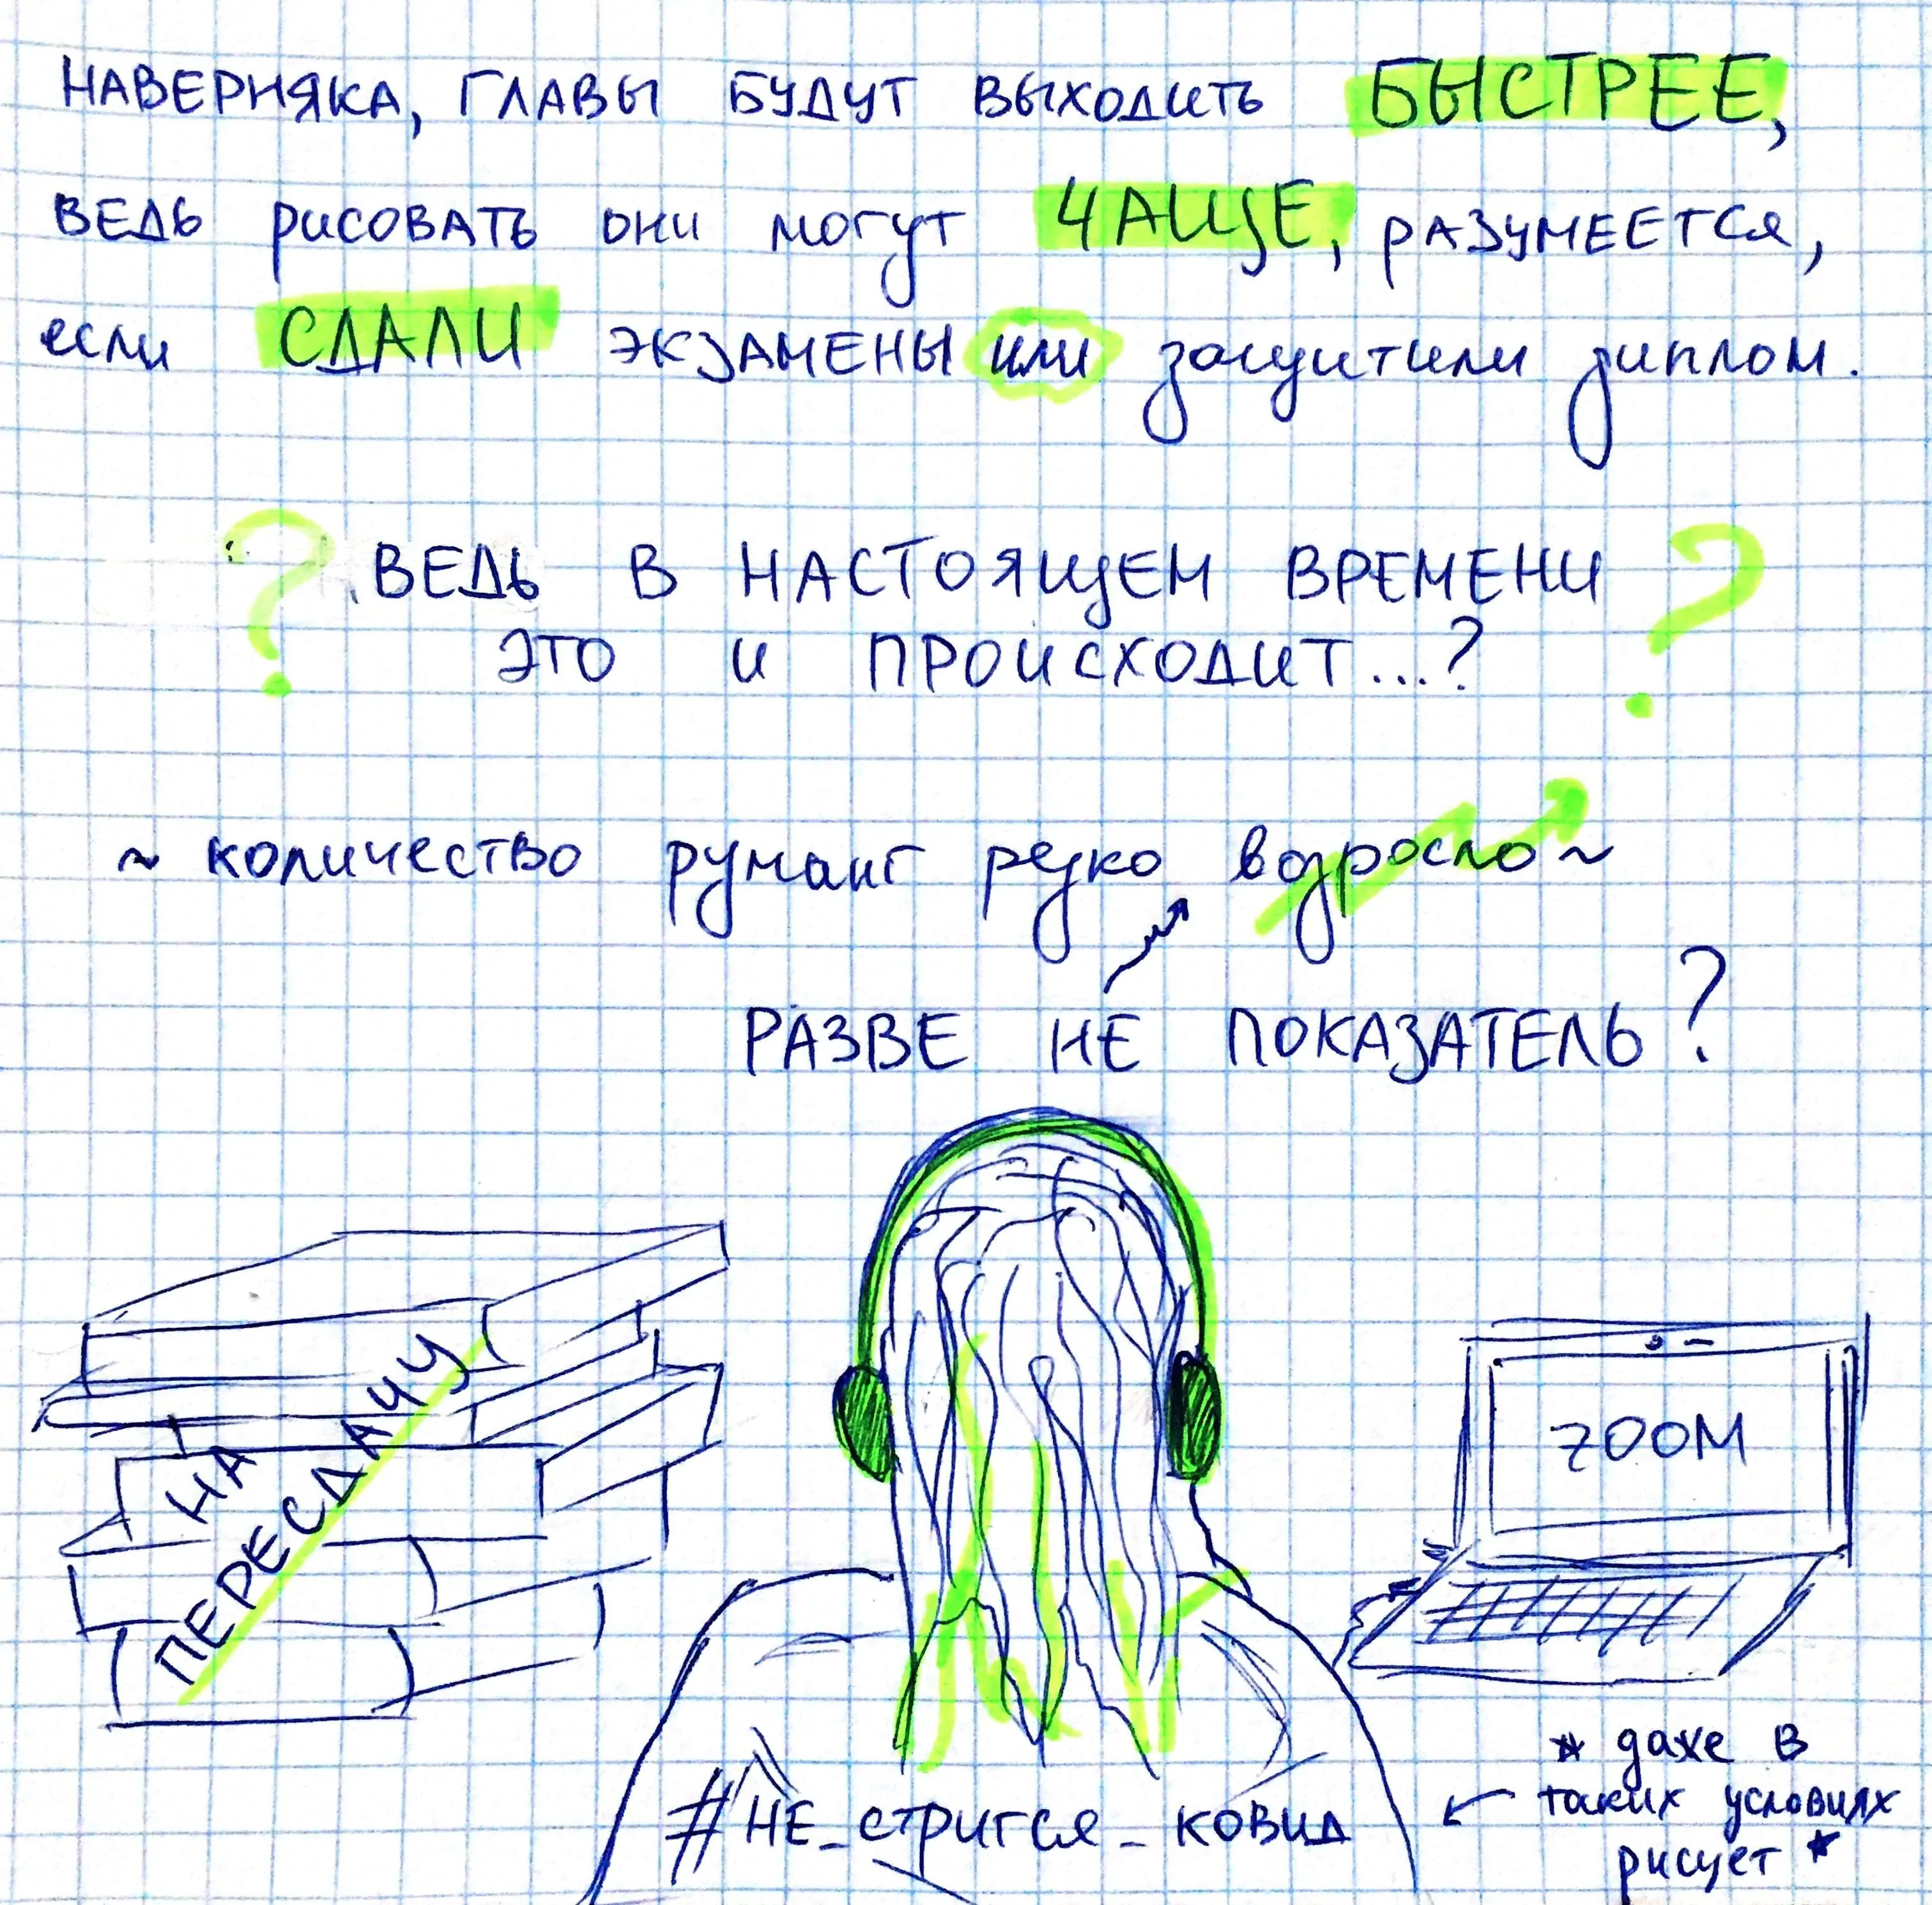 НАВЕРНЯКА, ГЛАВЫ БУДУТ ВЫХОДИТЬ БЫСТРЕЕ,
ВЕДЬ РИСОВАТЬ ОНИ МОГУТ ЧАЩЕ, РАЗУМЕЕТСЯ,
если СДАЛИ ЭКЗАМЕНЫ или защитили диплом.
? ВЕДЬ В НАСТОЯЩЕМ ВРЕМЕНИ ?
ЭТО И ПРОИСХОДИТ...?
~ количество руманг резко возросло ~
РАЗВЕ НЕ ПОКАЗАТЕЛЬ?
НА
ПЕРЕСДАЧУ
ZOOM
#НЕ_стригся_ковид
* даже в
таких условиях
рисует *